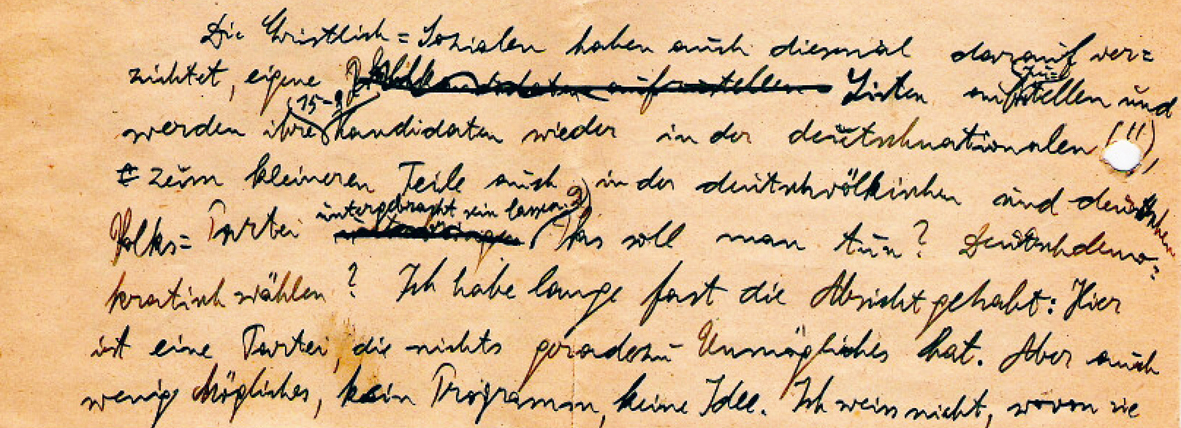 Die Christlich=Sozialen haben auch diesmal darauf ver=
zichtet, eigene Listen aufzustellen und
werden ihre (15-?) Kandidaten wieder in der deutschnationalen (!!),
zum kleineren Teile auch in der deutschvölkischen und deutschen
Volks=Partei untergebracht sein lassen. Was soll man tun? Deutschdemo=
kratisch wählen? Ich habe lange fast die Absicht gehabt: Hier
ist eine Partei, die nichts geradezu Unmögliches hat. Aber auch
wenig Mögliches, kein Programm, keine Idee. Ich weiss nicht, wovon sie